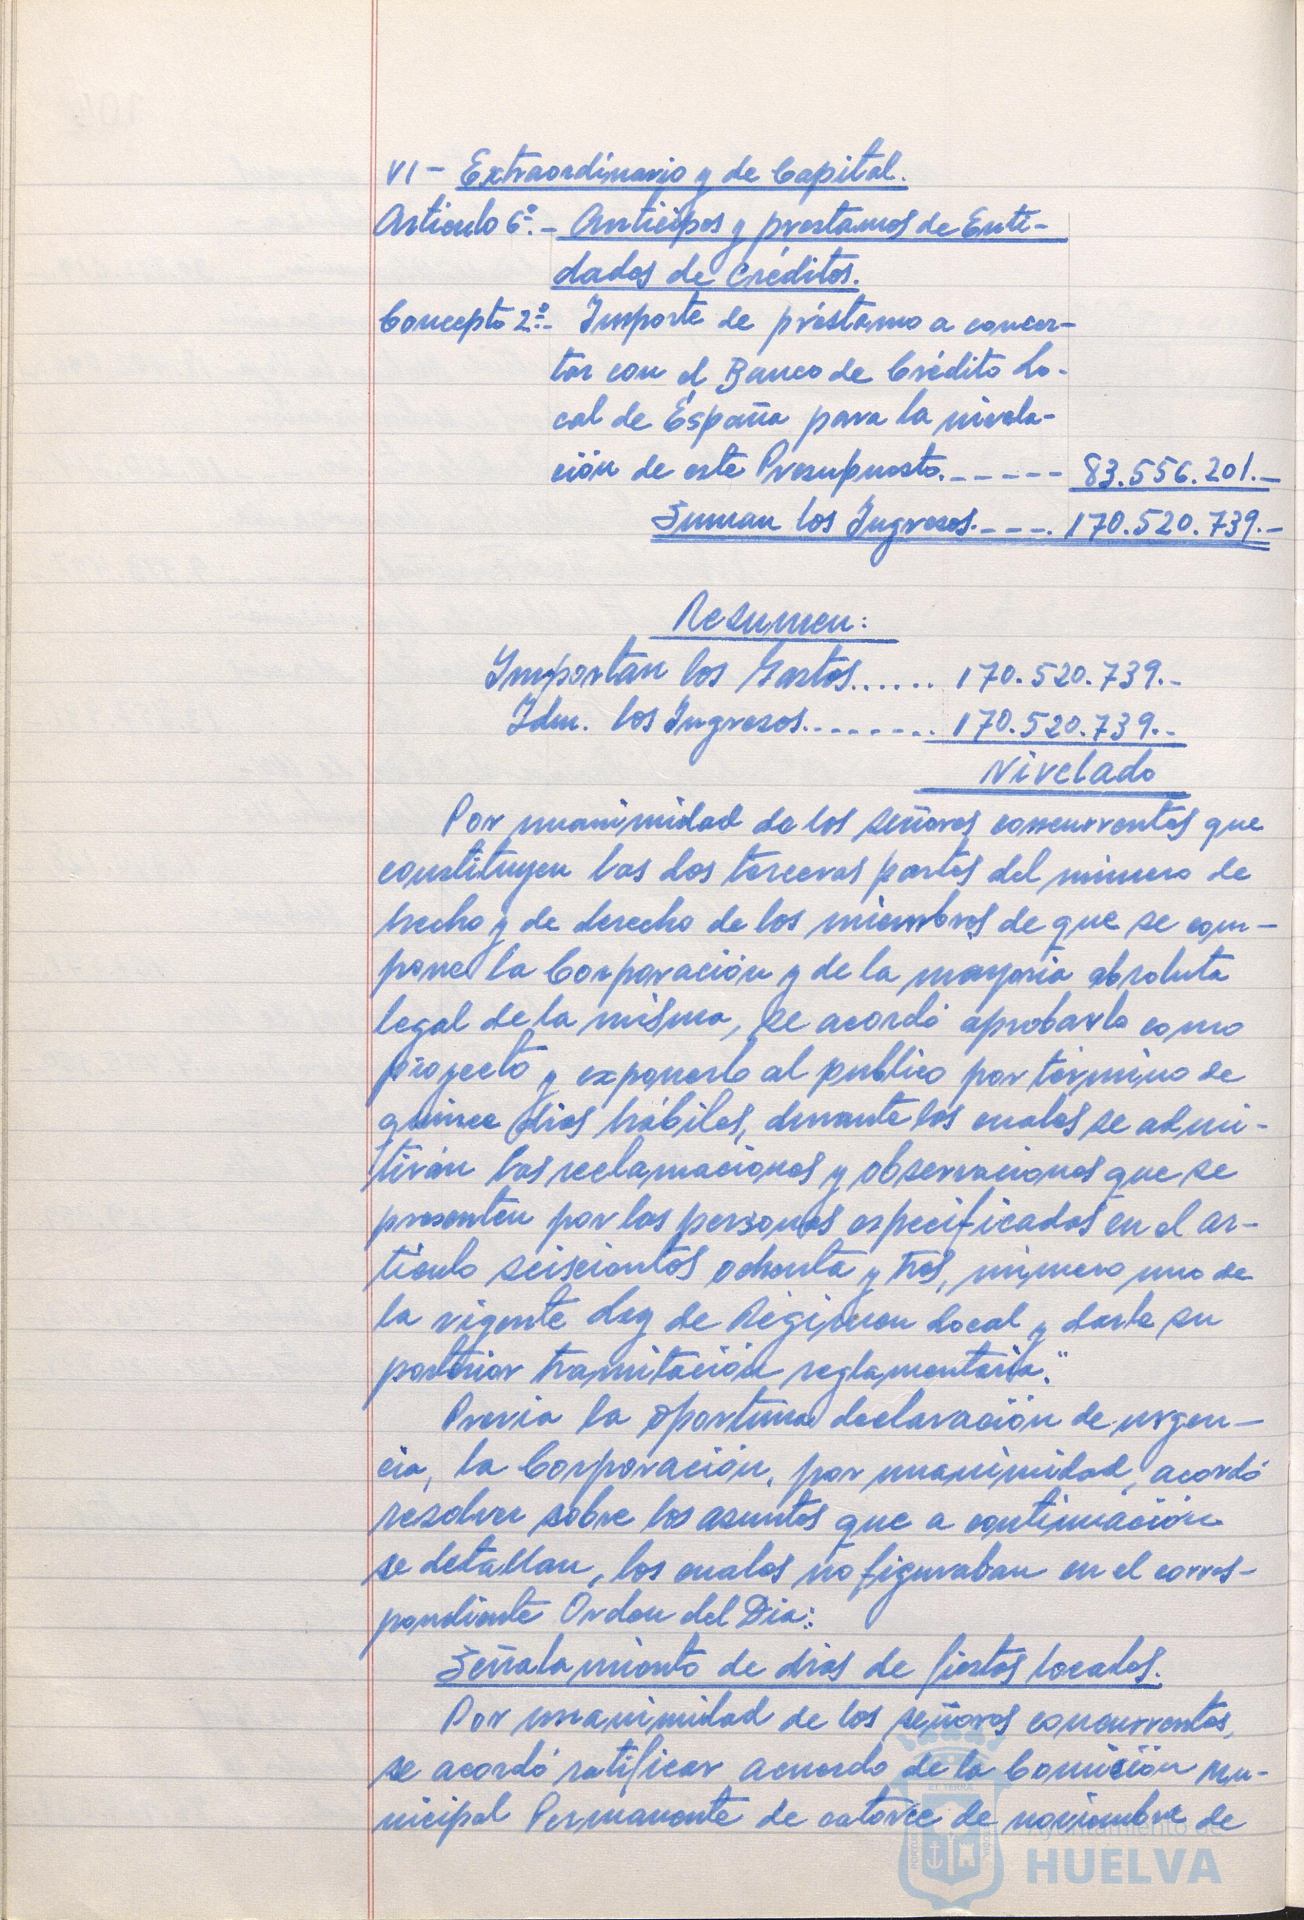 VI - Extraordinario y de Capital.
Artículo 6º.- Anticipos y prestamos de Enti-
dades de Créditos.
Concepto 2º.- Importe de préstamo a concer-
tar con el Banco de Crédito Lo-
cal de España para la nivela-
ción de este Presupuesto.----- 83.556.201.-
Suman los Ingresos.---. 170.520.739.-
Resumen:
Importan los Gastos...... 170.520.739.-
Idm. los Ingresos........ 170.520.739.-
Nivelado
Por unanimidad de los señores concurrentes que
constituyen las dos terceras partes del número de
hecho y de derecho de los miembros de que se com-
pone la Corporación y de la mayoria absoluta
legal de la misma, se acordó aprobarlo como
proyecto y exponerlo al publico por término de
quince dias hábiles, durante los cuales se admi-
tirán las reclamaciones y observaciones que se
presenten por las personas especificadas en el ar-
tículo seiscientos ochenta y tres, número uno de
la vigente Ley de Régimen Local y darle su
posterior tramitación reglamentaria."
Previa la oportuna declaración de urgen-
cia, la Corporación, por unanimidad, acordó
resolver sobre los asuntos que a continuación
se detallan, los cuales no figuraban en el corres-
pondiente Orden del Dia:
Señalamiento de dias de fiestas locales.
Por unanimidad de los señores concurrentes,
se acordó ratificar acuerdo de la Comisión Mu-
nicipal Permanente de catorce de noviembre de
Ayuntamiento de
HUELVA